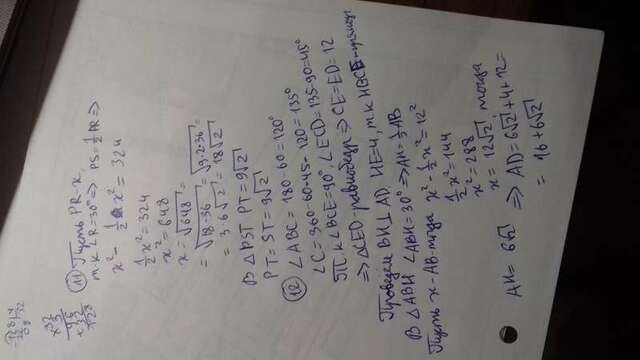 128 | 4
12   32
08
32
× 3
96
+ 32
128
11 Пусть PR-x,
т.к ∠R=30° => PS=½PR =>
x² - ½x² = 324
½x² = 324
x² = 648
x = √648 =
= √18·36 = √9·2·36 =
= 3·6√2 = 18√2
В △PST PT=9√2
PT=ST=9√2
12 ∠ABC = 180-60=120°
∠C=360-60-45-120=135°
Т.к ∠BCE=90°, ∠ECD=135-90=45°
=> △CED-равнобедр => CE=ED=12
Проведем BH⊥AD HE=4, т.к HBCE-прямоуг
В △ABH ∠ABH=30° => AH=½AB
Пусть x-AB-тогда x²-½x²=12²
½x²=144
x²=288
x=12√2, тогда
AH= 6√2 => AD=6√2+4+12=
= 16+6√2